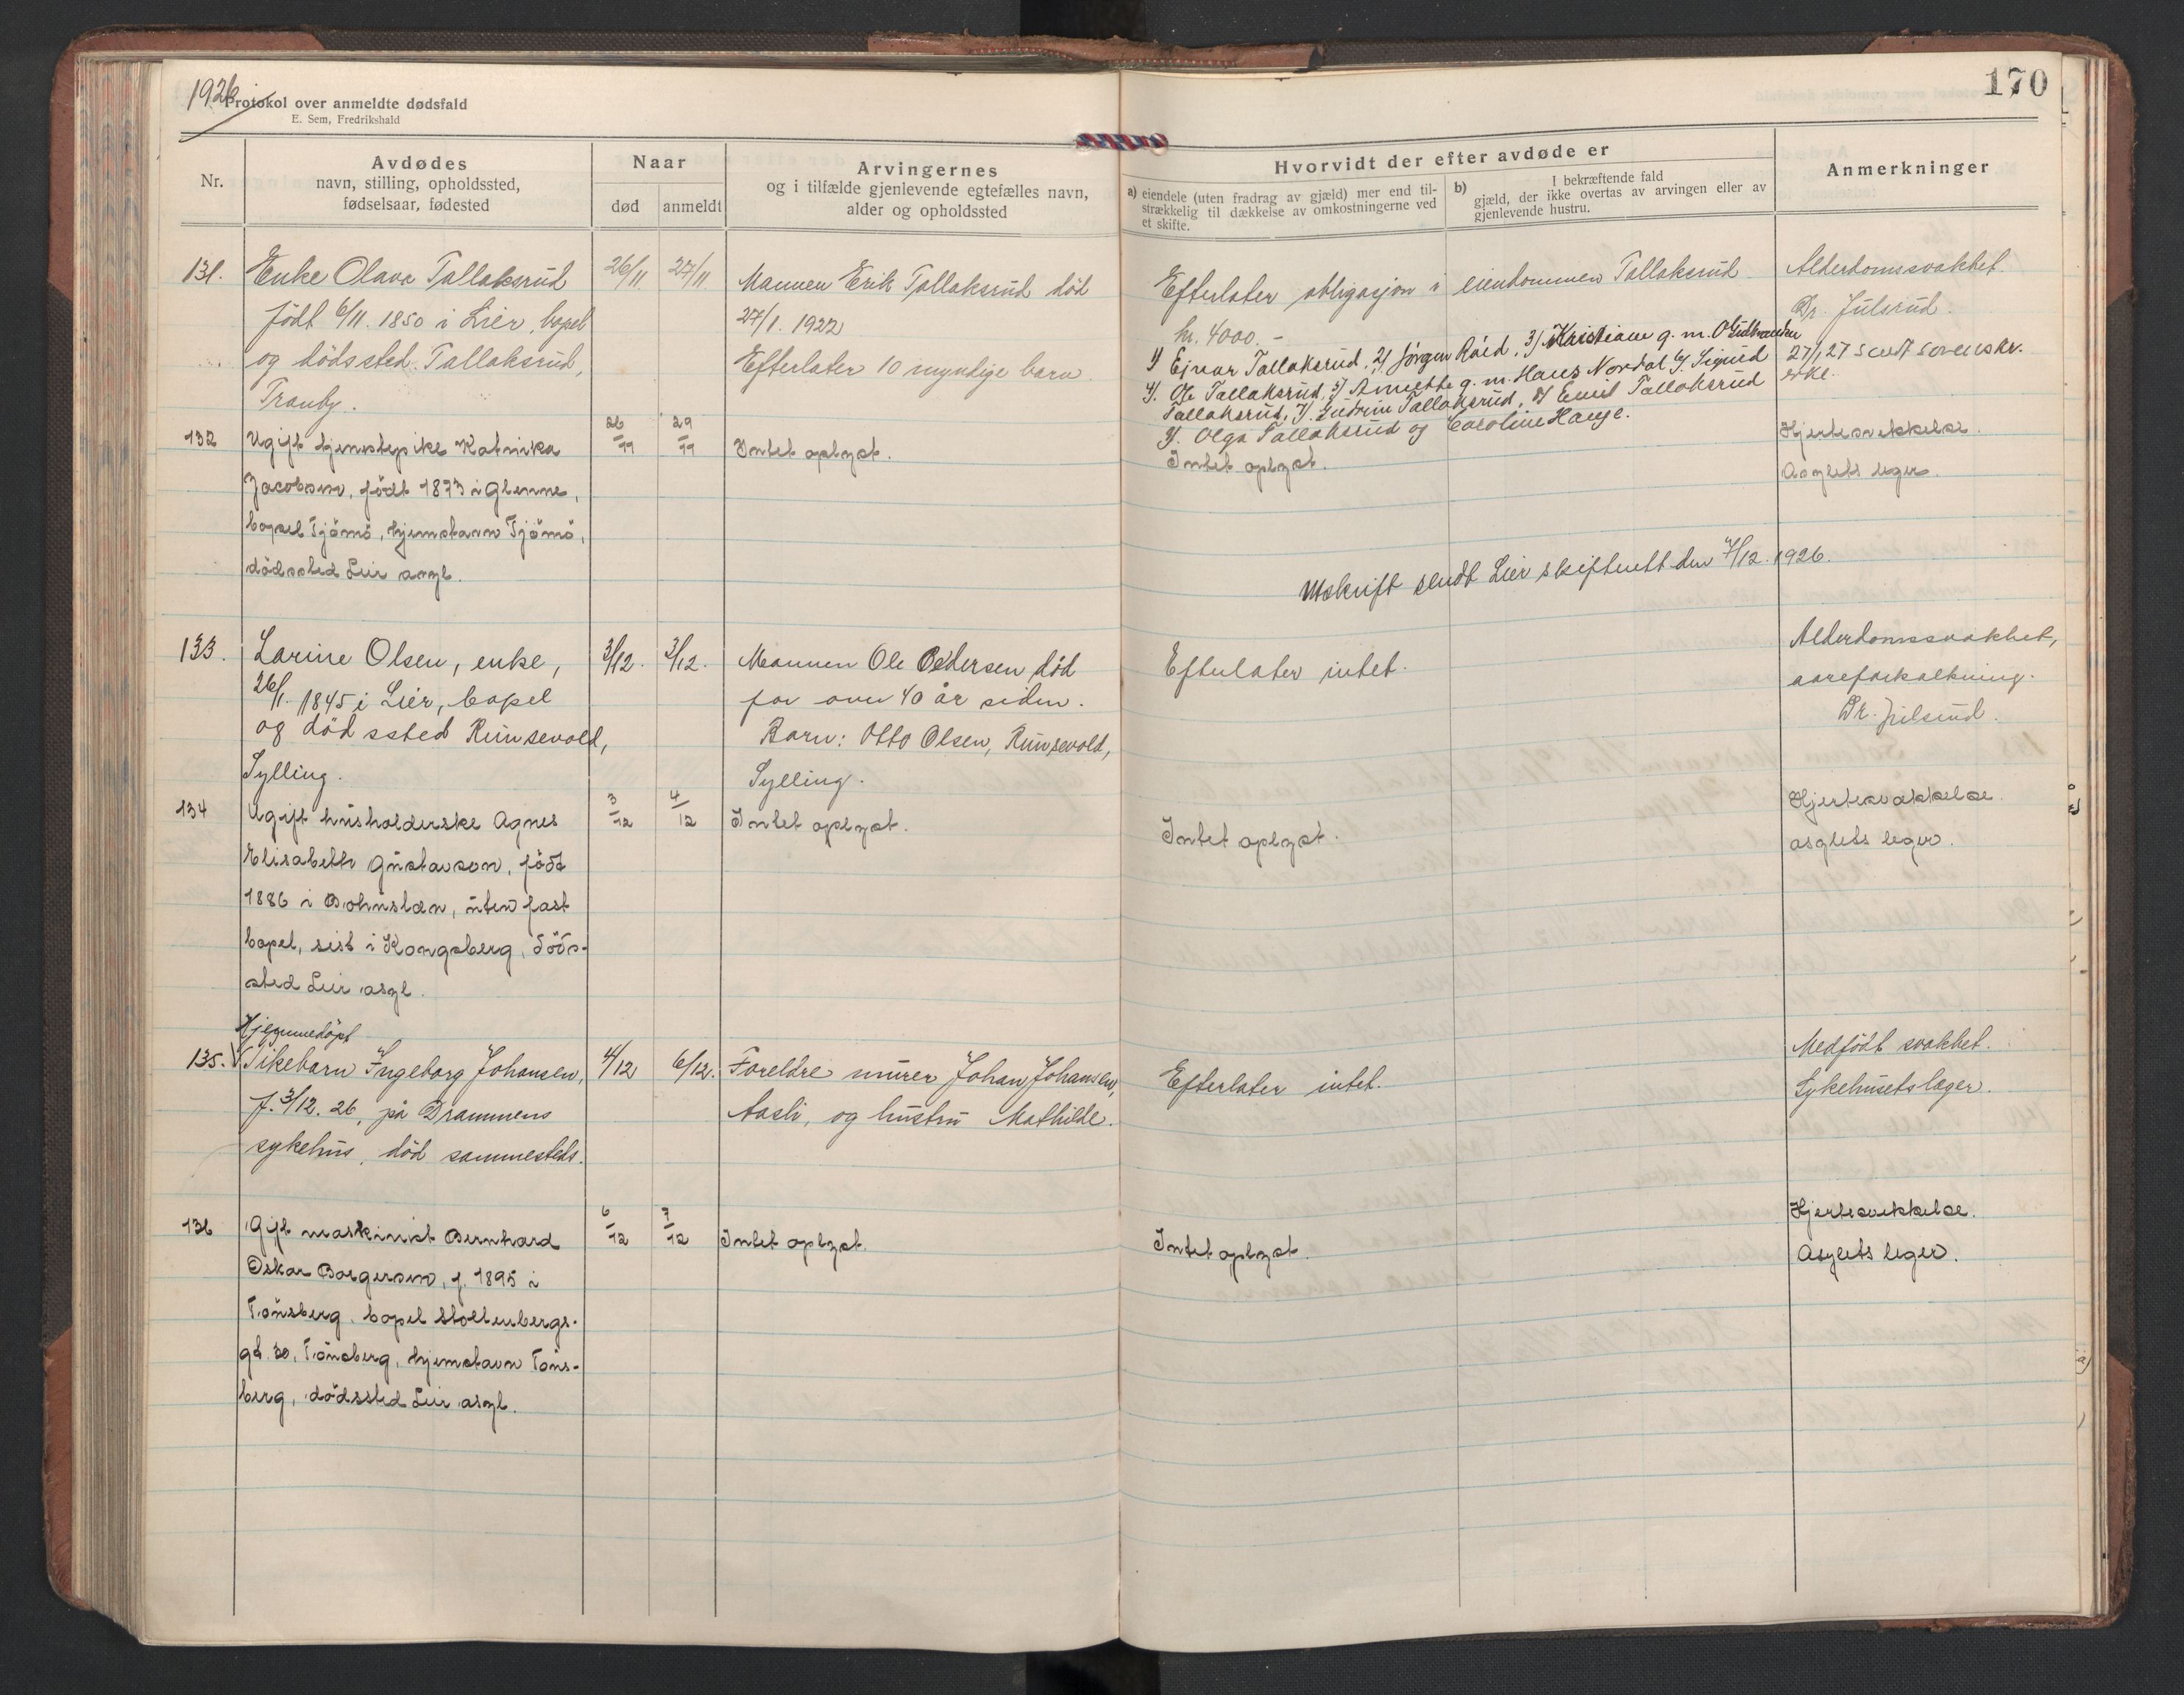 1926
Protokol over anmeldte dødsfald
E. Sem, Fredrikshald
170
Nr.
Avdødes
navn, stilling, opholdssted,
fødselsaar, fødested
Naar
død
anmeldt
Arvingernes
og i tilfælde gjenlevende egtefælles navn,
alder og opholdssted
Hvorvidt der efter avdøde er
a) eiendele (uten fradrag av gjæld) mer end til-
strækkelig til dækkelse av omkostningerne ved
et skifte.
b) I bekræftende fald
gjæld, der ikke overtas av arvingen eller av
gjenlevende hustru.
Anmerkninger
131.
Enke Olava Tallaksrud
født 6/11. 1850 i Lier, bopel
og dødssted Tallaksrud,
Tranby.
26/11
27/11
Mannen Erik Tallaksrud død
27/1. 1922
Efterlater 10 myndige barn.
Efterlater obligasjon i eiendommen Tallaksrud
kr. 4000.-
1) Ejnar Tallaksrud, 2) Jørgen Røed, 3) Kristiane g. m. O Gulbrandsen
4). Ole Tallaksrud, 5) Annette g. m. Hans Nordal 6). Sigurd
Tallaksrud, 7). Gudrun Tallaksrud, 8) Emil Tallaksrud
9). Olga Tallaksrud og Caroline Hauge.
Alderdomssvakhet.
Dr. Julsrud.
27/1 27 sendt sorenskr.
erkl.
132
Ugift tjenestepike Katrika
Jacobsen, født 1873 i Glemne,
bopel Tjömö, hjemstavn Tjömö,
dödssted Lier asyl.
26/11
29/11
Intet oplyst.
Intet oplyst.
Hjertesvekkelse.
Asylets leger.
Utskrift sendt Lier skifterett den 7/12. 1926.
133.
Larine Olsen, enke,
26/1. 1845 i Lier, bopel
og dødssted Rimsevold,
Sylling.
3/12.
3/12.
Mannen Ole Pedersen død
for over 40 år siden.
Barn: Otto Olsen, Rimsevold,
Sylling.
Efterlater intet.
Alderdomssvakhet,
aareforkalkning.
Dr. Julsrud.
134
Ugift husholderske Agnes
Elisabeth Gustavson, född
1886 i Bohuslæn, uten fast
bopel, sist i Kongsberg, döds-
sted Lier asyl.
3/12
4/12
Intet oplyst.
Intet oplyst.
Hjertesvekkelse.
asylets leger.
Hjemmedøpt
135. V Pikebarn Ingeborg Johansen,
f. 3/12. 26, på Drammens
sykehus, død sammesteds.
4/12
6/12.
Foreldre murer Johan Johansen,
Aasli, og hustru Mathilde.
Efterlater intet.
Medfødt svakhet.
Sykehusets læger.
136
Gift maskinist Bernhard
Oskar Borgersen, f. 1895 i
Tønsberg, bopel Stoltenbergs-
gt. 30, Tönsberg, hjemstavn Töns-
berg, dödssted Lier asyl.
6/12
7/12
Intet oplyst.
Intet oplyst.
Hjertesvekkelse.
Asylets leger.